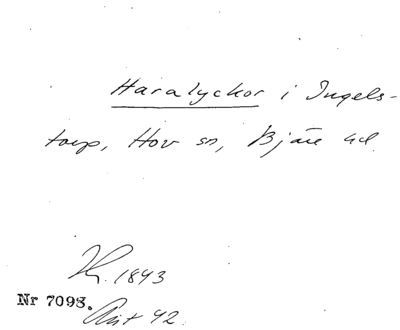 Haralyckor i Ingels-
torp, Hov sn, Bjäre hd.
1843
Nr 7098.
42.